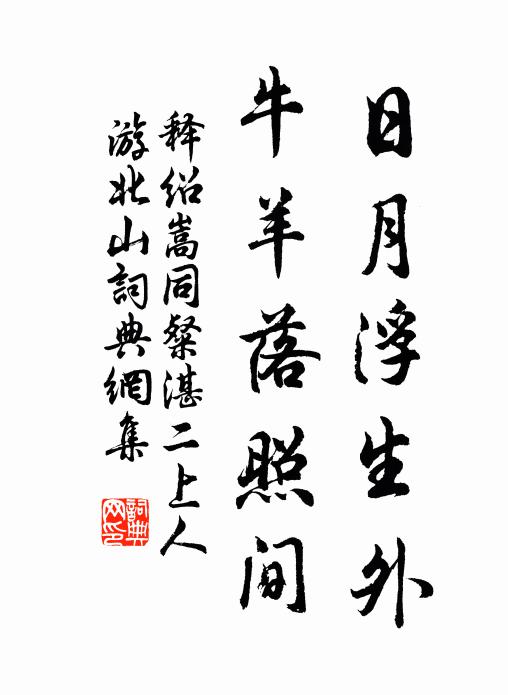 日月浮生外
牛羊落照间
释绍嵩同粲湛二上人
游北山詞典網集
詞典网印